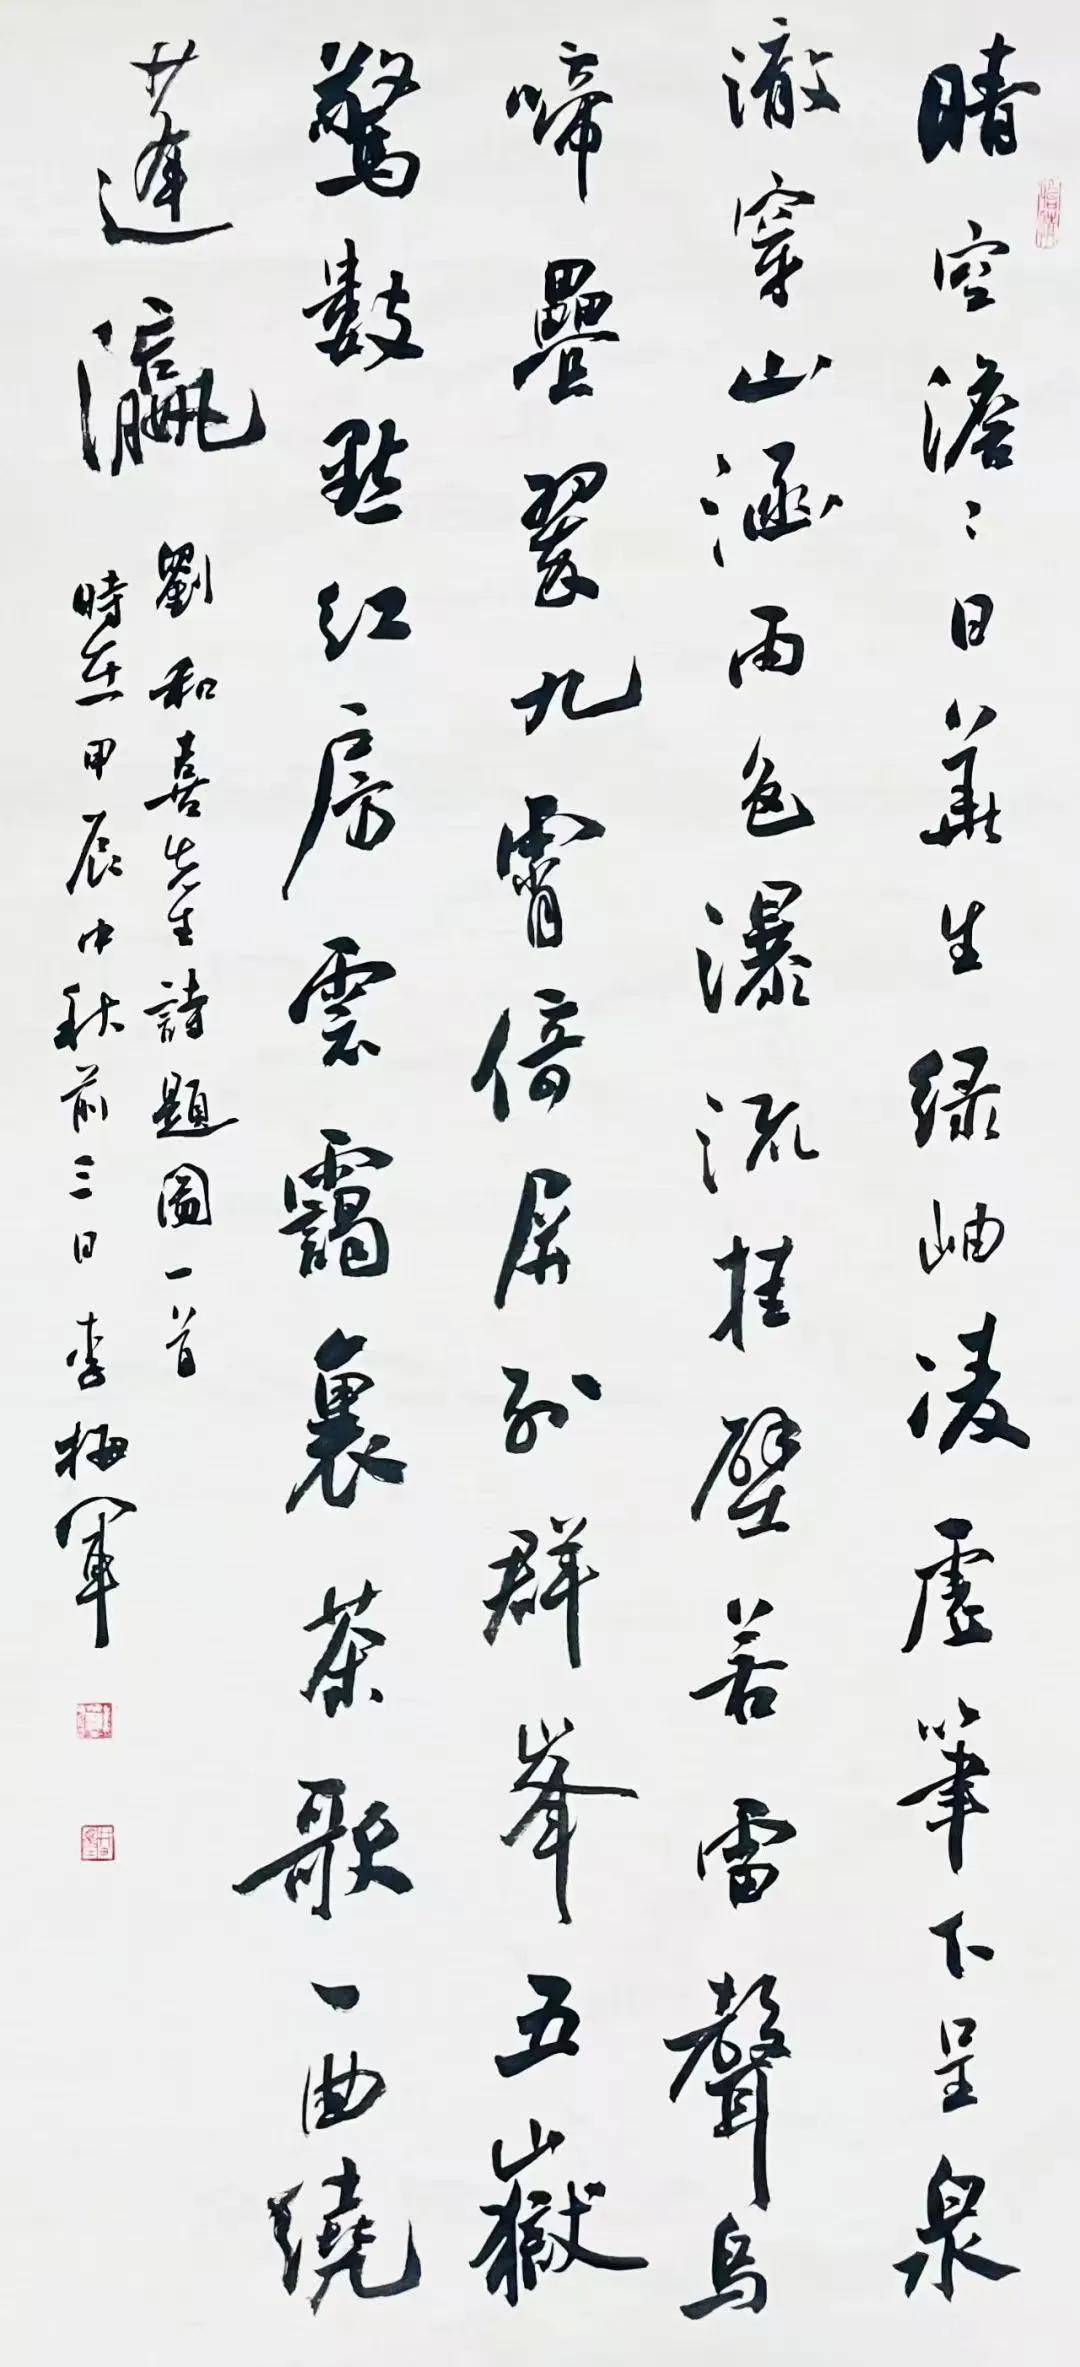 晴空澹〻日華生綠岫凌虛筆下呈泉
澈穿山涵雨色瀑流挂壁若雷聲鳥
啼疊翠九霄倚屏列群峯五嶽
驚數點紅房雲靄裏茶歌一曲繞
蓬瀛
劉和喜先生詩題圖一首
時在甲辰中秋前三日李梅軍